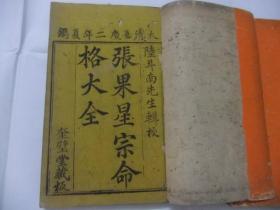 大清嘉慶二年夏鐫
陸斗南先生輯校
張果星宗命
格大全
奎璧堂藏板